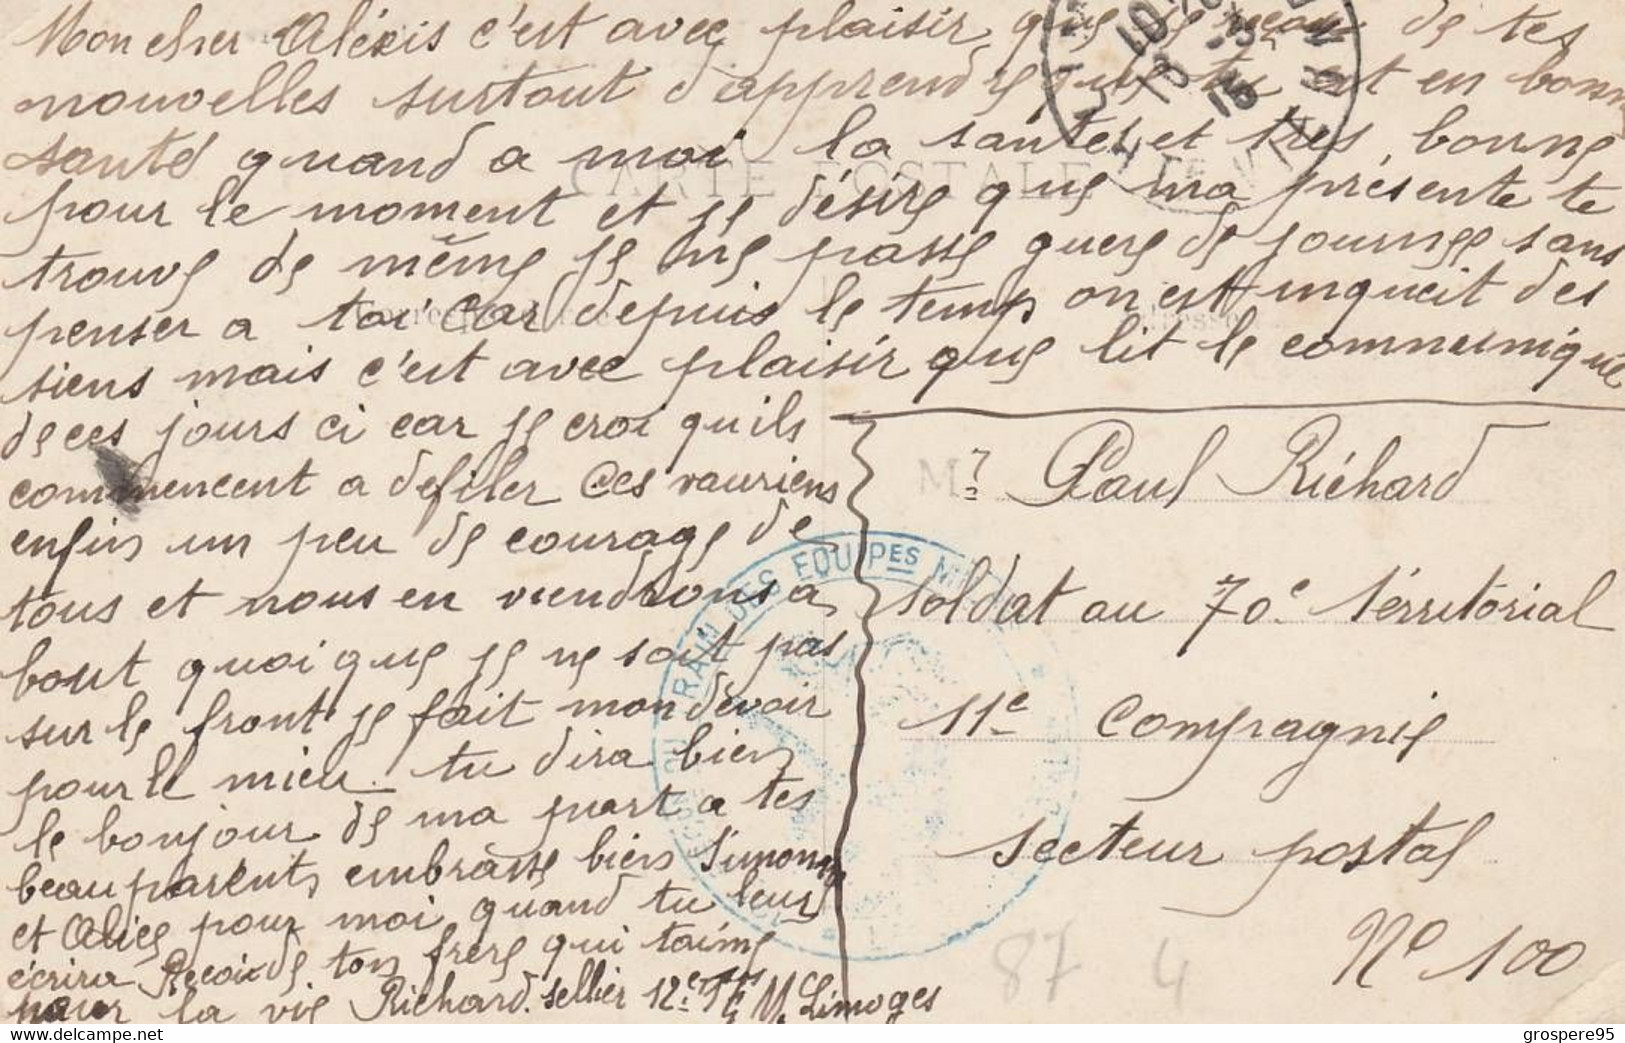 Mon cher Alexis c'est avec plaisir que je reçois de tes
nouvelles surtout d'apprendre que tu est en bonne
santé quand a moi la santée et tres bonne
pour le moment et je désire que ma présente te
trouve de même je ne passe guere de journee sans
penser a toi car depuis le temp on est inquiét des
siens mais c'est avec plaisir que lit le communiqué
de ces jours ci car je croi quils
commencent a defiler ces vauriens
enfin un peu de courage de
tous et nous en viendrons a
bout quoi que je ne soit pas
sur le front je fait mon devoir
pour le mieu. tu dira bien
le bonjour de ma part a tes
beau parents embrasse bien Simone
et Alice pour moi quand tu leur
écrira Recoi de ton frere qui taime
pour la vie Richard. sellier 12e Limoges
CARTE POSTALE
M. r Paul Richard
soldat au 70e térritorial
11e Compagnie
Secteur postal
No 100
87 4
TRAIN DES EQUIPES
10
15
grospere95